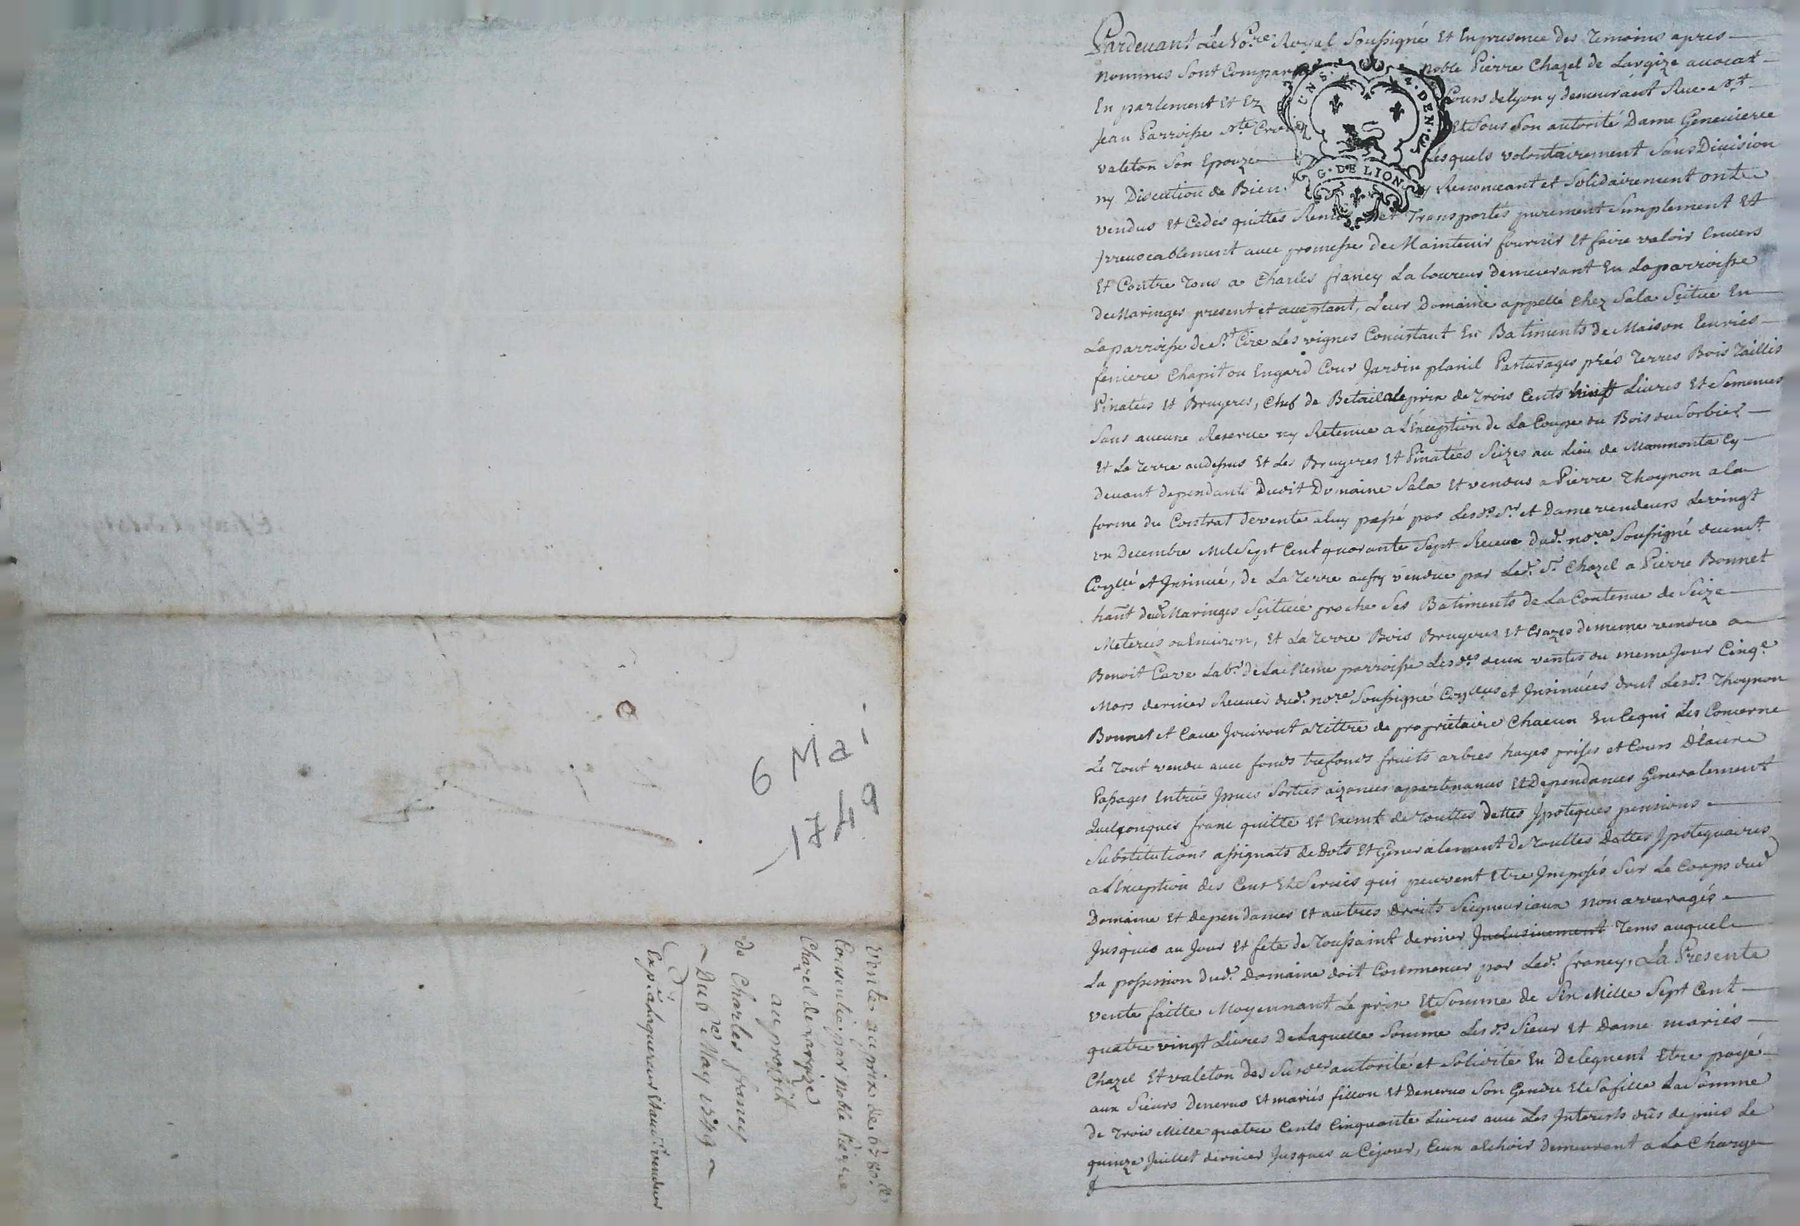 6 Mai
1749
Vente au prix de 6780 #
Consentie par noble Pierre
Chazel de Largize
au proffit
de Charles francy
Du 6e May 1749
Exp. a Laquereur Etaud. vendeur
Pardevant Le No.re Royal Soussigné Et En presence des Temoins apres
nommés Sont Comparus noble Pierre Chazel de Largize avocat
En parlement Et Ez Cours de Lyon y demeurant Rue St.
Jean Parroisse Ste Croix Et Sous Son autorité Dame Genevieve
valeton Son Epouze Lesquels volontairement Sans Division
ny Discution de Biens y Renonceant et Solidairement ont
vendus Et Cedés quittés Remis et Transportés purement Simplement Et
jrrevocablement avec promesse de Maintenir fournir Et faire valoir Envers
Et Contre Tous a Charles francy Laboureur demeurant En La parroisse
de Maringes present et acceptant, Leur Domaine appellé chez Sala Scitué En
La parroisse de St. Cire Les vignes Concistant En Batiments de Maison Ecuries
feniere Chapit ou Engard Cour Jardin planil Pasturages prés Terres Bois Taillis
Pinatées Et Bruyeres, Chef de Betail de prix de Trois Cents Livres Et Semences
Sans aucune Reserve ny Retenue a L'Exception de La Coupe du Bois du Sorbier
Et La Terre au dessus Et Les Bruyeres Et Pinatées Scizes au Lieu de Cy
devant dependants Dudit Domaine Sala Et vendus a Pierre Thoynon a la
forme du Contrat de vente a luy passé par Lesd. Sr. et Dame vendeurs Le vingt
un Decembre Mil Sept Cent quarante Sept Receue dud. no.re Soussigné
Et Jnsinué, de La Terre aussy vendue par Led. Sr. Chazel a Pierre Bonnet
hant. dud. Maringes Scituée proche Ses Batiments de La Contenue de Seize
Meterées ou Environ, Et La Terre Bois Bruyeres et de meme vendue a
Benoit Cave Lab.r de La Meme parroisse Lesd. deux ventes du meme Jour Cinq.e
Mars dernier Receues dud. no.re Soussigné et Jnsinuées dont Lesd. Thoynon
Bonnet et Cave Jouiront a Tittre de proprietaire Chacun En Ce qui Les Concerne
Le Tout vendu avec fonds trefonds fruits arbres hayes prises et Cours D'Eaux
Passages Entrées Jssues Sorties aizances apartenances Et Dependances Generalement
Quelconques franc quitte Et Exemt de Touttes Dettes Jpoteques pensions
Substitutions assignats de Dots Et Generalement de Touttes Dettes Jpotequaires
a L'Exception des Cens Et Servis qui peuvent Etre Jmposés Sur Le Corps dud.
Domaine Et dependances Et autres Droits Seigneuriaux non arreragés
Jusques au Jour Et fete de Toussaint dernier Jnclusivement Tems auquel
La possession dud. Domaine doit Commencer par Led. francy, La Presente
vente faitte Moyennant Le prix Et Somme de Six Mille Sept Cent
quatre vingt Livres De Laquelle Somme Les d. Sieur Et Dame mariés
Chazel Et valeton des Susd. autorité et Solidité En Deleguent Etre payé
aux Sieurs Denervo Et mariés fillon Et Denervo Son Gendre Et Sa fille La Somme
de Trois Mille quatre Cents Cinquante Livres avec Les Interests dûs depuis Le
quinze Juillet dernier Jusques a Cejour, Ceux a Echoir demeurant a La Charge
G. DE LION